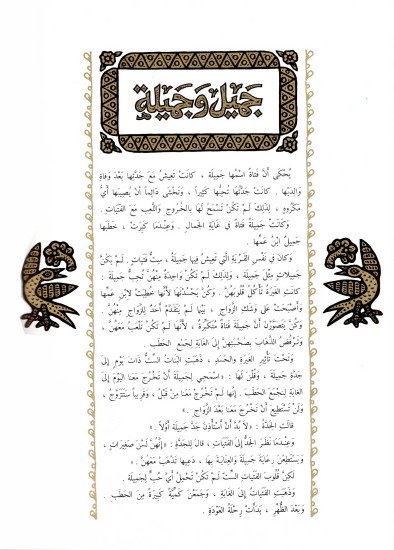 جَميل وَجَميلة
يُحْكَى أَنَّ فَتاةً اسْمُها جَميلَة ، كانَتْ تَعيشُ مَعَ جَدَّتِها بَعْدَ وَفاةِ
والِدَيْها . كانَتْ جَدَّتُها تُحِبُّها كَثيراً ، وَتَخْشَى دائِماً أَنْ يُصيبَها أَيُّ
مَكْروهٍ ، لِذلِكَ لَمْ تَكُنْ تَسْمَحُ لَها بِالخُروجِ وَاللَّعِبِ مَعَ الفَتَياتِ .
وَكانَتْ جَميلَةُ فَتاةً في غايَةِ الجَمالِ . وَعِنْدَما كَبِرَتْ ، خَطَبَها
جَميلُ ابْنُ عَمِّها .
وَكانَ في نَفْسِ القَرْيَةِ الَّتي تَعيشُ فيها جَميلَةُ ، سِتُّ فَتَياتٍ . لَمْ يَكُنَّ
جَميلاتٍ مِثْلَ جَميلَة ، وَلِذلِكَ لَمْ تَكُنْ واحِدَةٌ مِنْهُنَّ تُحِبُّ جَميلَة .
كانَتِ الغَيْرَةُ تَأْكُلُ قُلوبَهُنَّ . وَكُنَّ يَحْسُدْنَها لِأَنَّها خُطِبَتْ لِابْنِ عَمِّها
وَأَصْبَحَتْ عَلى وَشْكِ الزَّواجِ ، بَيْنَما لَمْ يَتَقَدَّمْ أَحَدٌ لِلزَّواجِ مِنْهُنَّ .
وَكُنَّ يَتَصَوَّرْنَ أَنَّ جَميلَةَ فَتاةٌ مُتَكَبِّرَةٌ ، لِأَنَّها لَمْ تَكُنْ تَلْعَبُ مَعَهُنَّ ،
وَتَرْفُضُ الذَّهابَ بِصُحْبَتِهِنَّ إِلى الغابَةِ لِجَمْعِ الحَطَبِ .
وَتَحْتَ تَأْثيرِ الغَيْرَةِ وَالحَسَدِ ، ذَهَبَتِ البَناتُ السِّتُّ ذاتَ يَوْمٍ إِلى
جَدَّةِ جَميلَة ، وَقُلْنَ لَها : « اسْمَحي لِجَميلَةَ أَنْ تَخْرُجَ مَعَنا اليَوْمَ إِلى
الغابَةِ لِنَجْمَعَ الحَطَبَ . إِنَّها لَمْ تَخْرُجْ مَعَنا مِنْ قَبْلُ ، وَقَريباً سَتَتَزَوَّجُ ،
وَلَنْ تَسْتَطيعَ أَنْ تَخْرُجَ مَعَنا بَعْدَ الزَّواجِ . »
قالَتِ الجَدَّةُ : « لا بُدَّ أَنْ أَسْتَأْذِنَ جَدَّ جَميلَةَ أَوَّلاً . »
وَعِنْدَما نَظَرَ الجَدُّ إِلى الفَتَياتِ ، قالَ لِلجَدَّةِ : « إِنَّهُنَّ لَسْنَ صَغيراتٍ ،
وَيَسْتَطِعْنَ رِعايَةَ جَميلَةَ وَالعِنايَةَ بِها ، دَعيها تَذْهَبُ مَعَهُنَّ . »
لكِنَّ قُلوبَ الفَتَياتِ السِّتِّ لَمْ تَكُنْ تَحْمِلُ أَيَّ حُبٍّ لِجَميلَة .
وَذَهَبَتِ الفَتَياتُ إِلى الغابَةِ ، وَجَمَعْنَ كَمِّيَّةً كَبيرَةً مِنَ الحَطَبِ .
وَبَعْدَ الظُّهْرِ ، بَدَأَتْ رِحْلَةُ العَوْدَةِ .